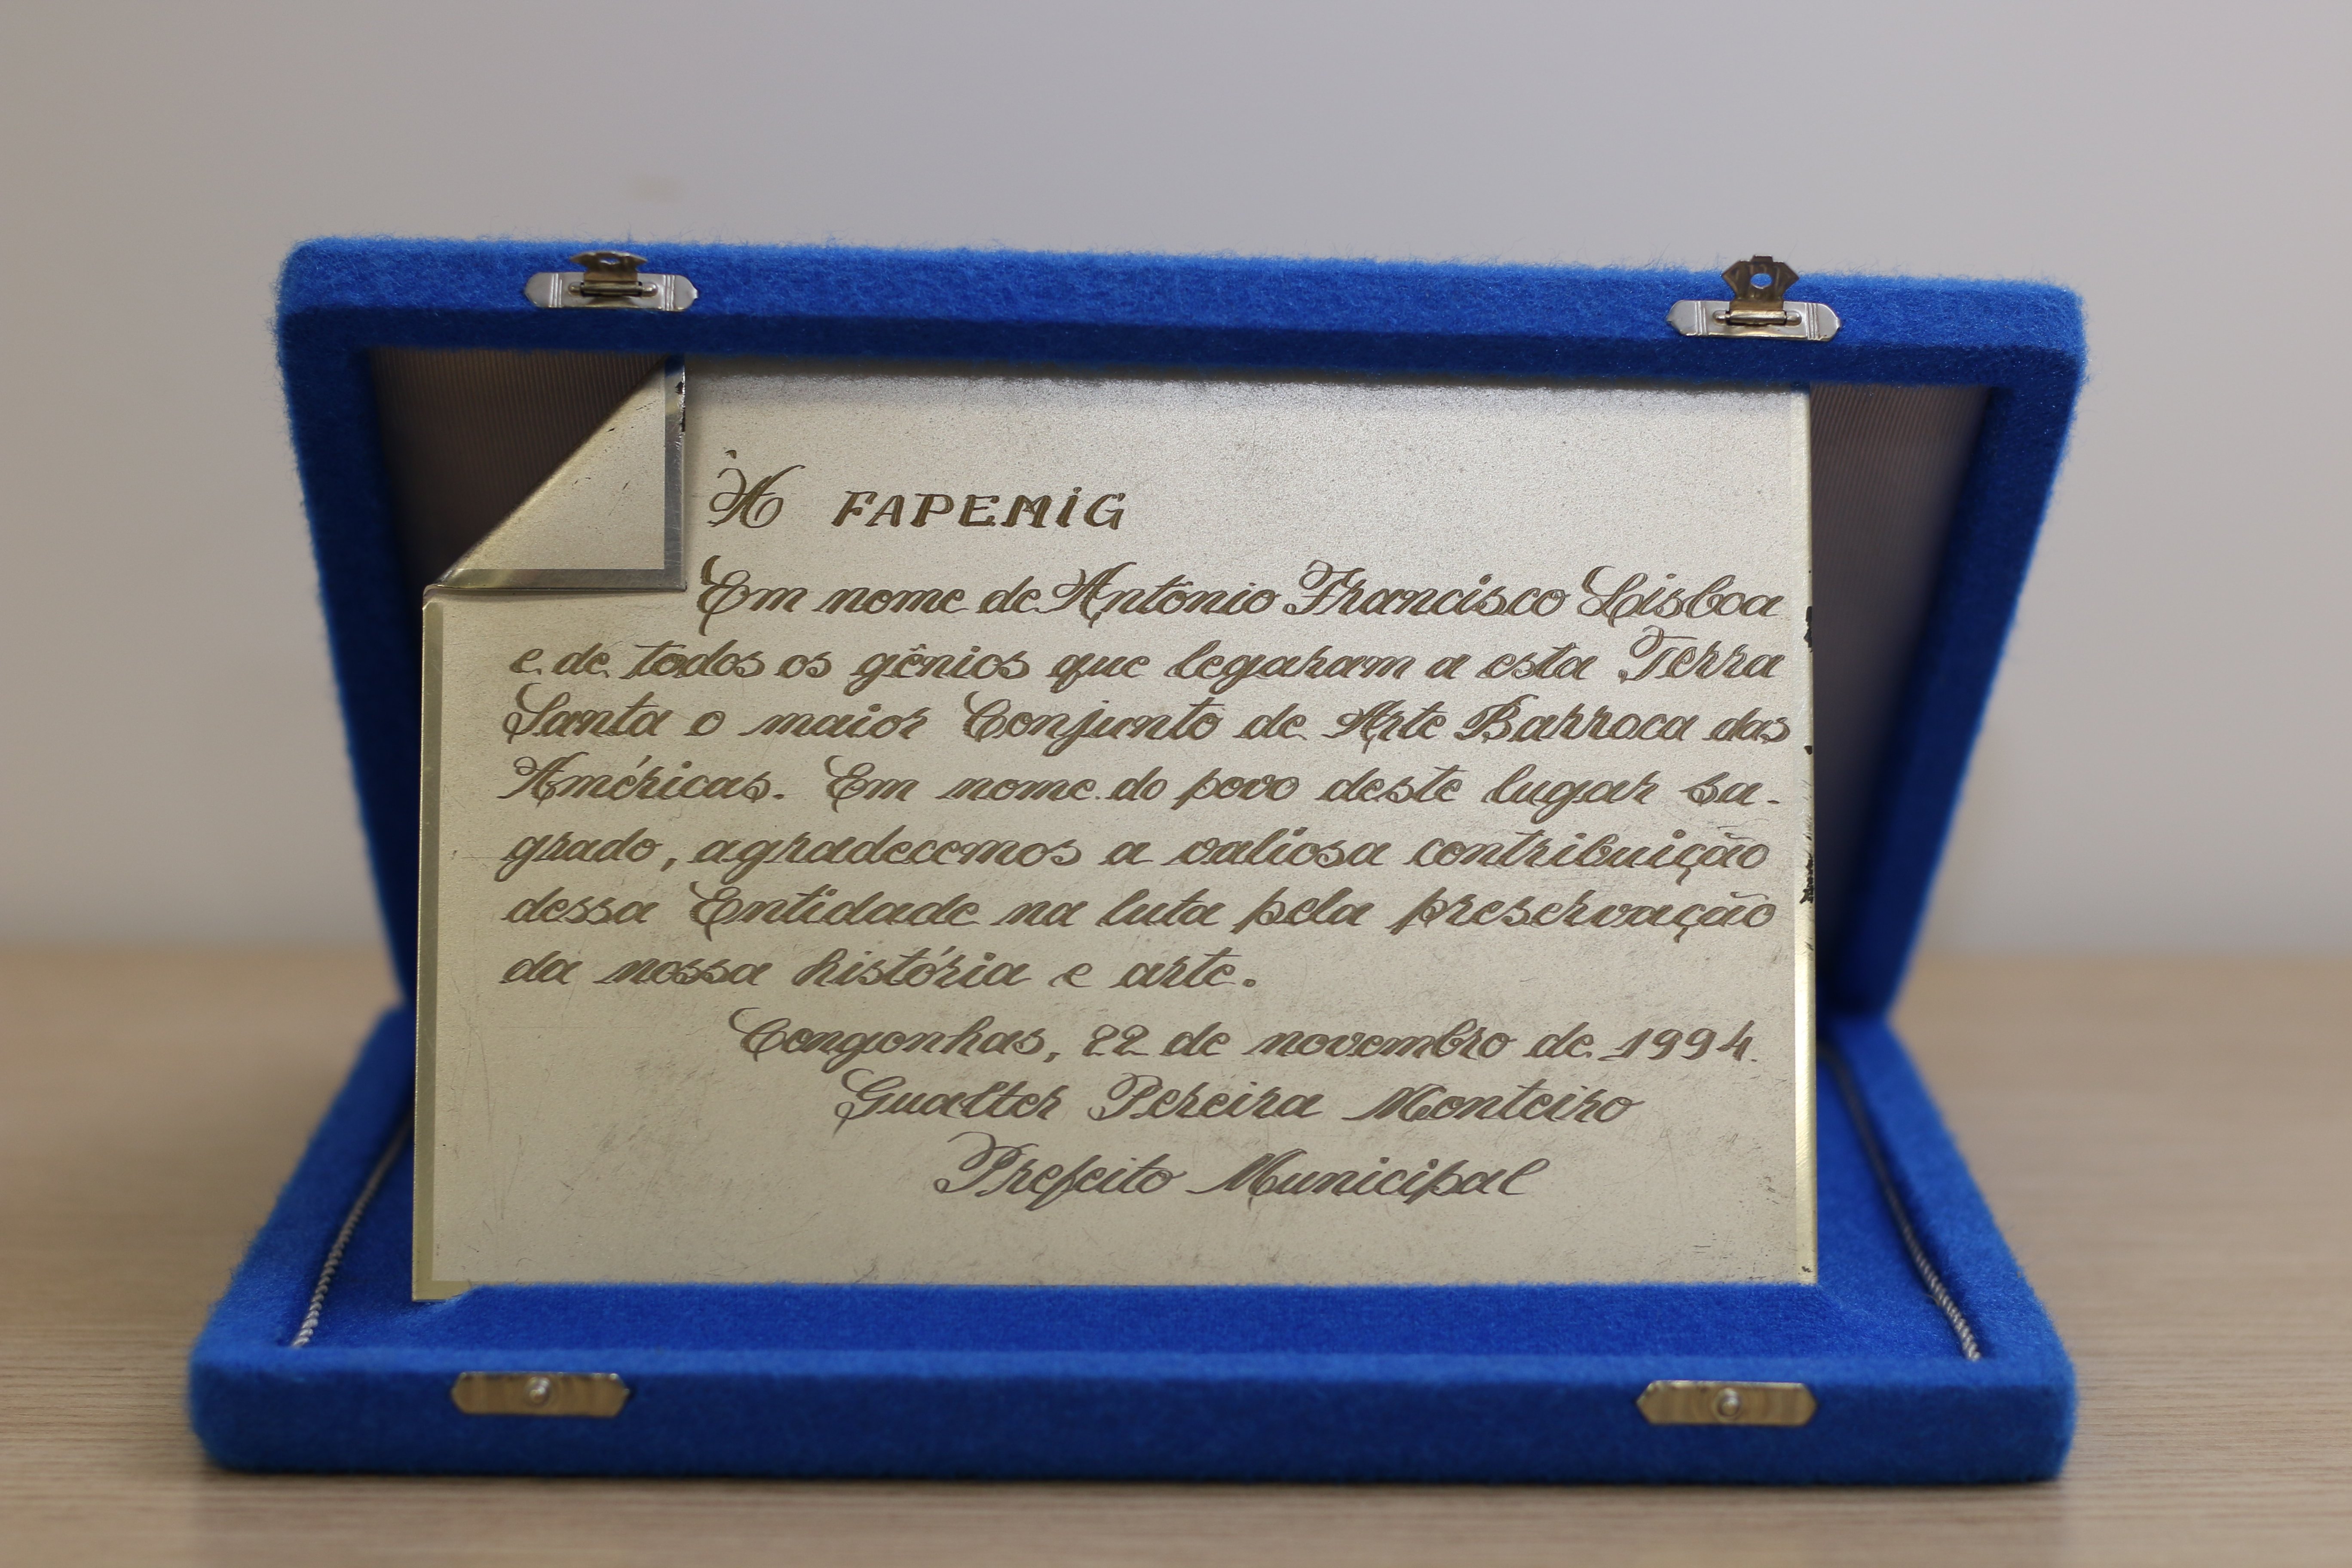 À FAPEMIG
Em nome de Antônio Francisco Lisboa
e de todos os gênios que legaram a esta Terra
Santa o maior Conjunto de Arte Barroca das
Américas. Em nome do povo deste lugar sa-
grado, agradecemos a valiosa contribuição
dessa Entidade na luta pela preservação
da nossa história e arte.
Congonhas, 22 de novembro de 1994.
Gualter Pereira Monteiro
Prefeito Municipal